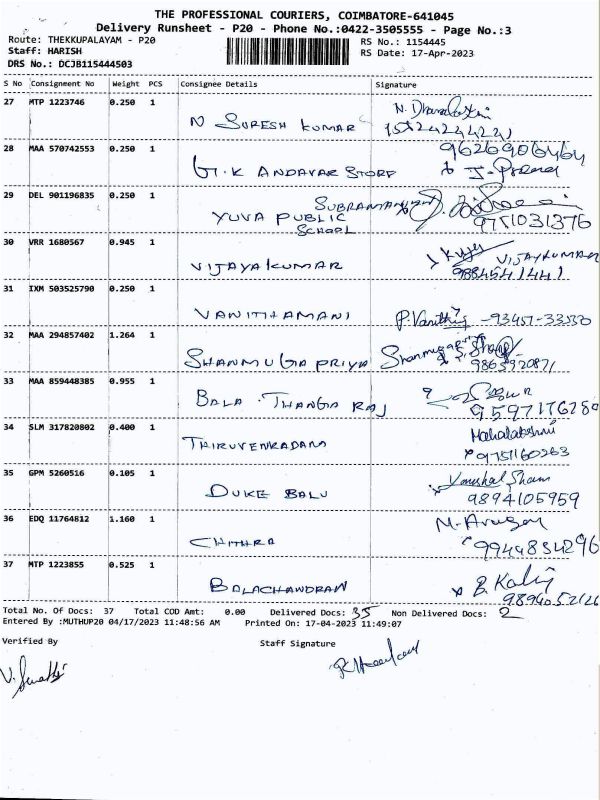 THE PROFESSIONAL COURIERS, COIMBATORE-641045
Delivery Runsheet - P20 - Phone No.:0422-3505555 - Page No.:3
Route: THEKKUPALAYAM - P20
RS No.: 1154445
Staff: HARISH
RS Date: 17-Apr-2023
DRS No.: DCJB115444503
S No Consignment No Weight PCS Consignee Details Signature
27 MTP 1223746 0.250 1
N SURESH KUMAR
28 MAA 570742553 0.250 1
9626906464
G.K ANDAVAR STORE
29 DEL 901196835 0.250 1
SUBRAMANIYAM
YUVA PUBLIC
SCHOOL
9751031376
30 VRR 1680567 0.945 1
VIJAYKUMAR
VIJAYAKUMAR
9884541441
31 IXM 503525790 0.250 1
VANITHAMANI P.Vanitha -93457-33550
32 MAA 294857402 1.264 1
SHANMUGAPRIYA Shanmugapriya
9863920871
33 MAA 859448385 0.955 1
BALA THANGARAJ
9597176280
34 SLM 317820802 0.400 1
Mahalakshmi
THIRUVENKADAM 9751160263
35 GPM 5260516 0.105 1
DUKE BALU
9894105959
36 EDQ 11764812 1.160 1
CHITHRA 9944834296
37 MTP 1223855 0.525 1
BALACHANDRAN
9894052126
Total No. Of Docs: 37 Total COD Amt: 0.00 Delivered Docs: 35 Non Delivered Docs: 2
Entered By :MUTHUP20 04/17/2023 11:48:56 AM Printed On: 17-04-2023 11:49:07
Verified By Staff Signature